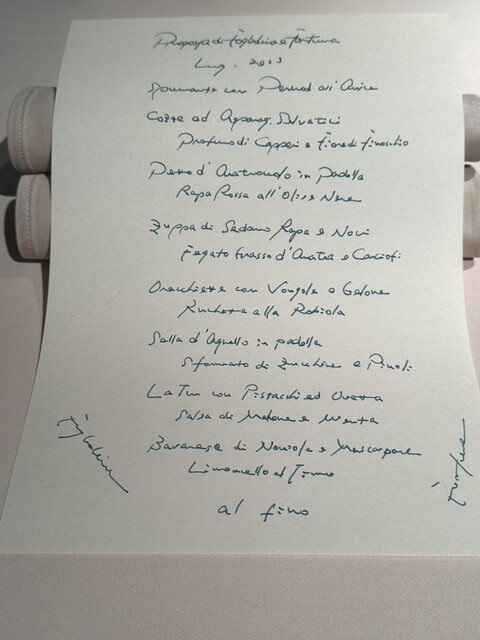 Proposya di
Lug. 2023
Spumante con Pernod all'Anice
Cozze ed Selvatici
Profumo di Capperi e Fiore di Finocchio
Petto d'Anatra in Padella
Rapa Rossa all'Olive Nere
Zuppa di Sedano Rapa e Noci
Fegato Grasso d'Anatra e Carciofi
Orecchiette con Vongole e
Ruchetta alla Robiola
Sella d'Agnello in padella
Sformato di Zucchine e Pinoli
con Pistacchi ed Uvetta
Salsa di Melone e Menta
Bavarese di Nocciola e Mascarpone
Limoncello al Timo
al fino